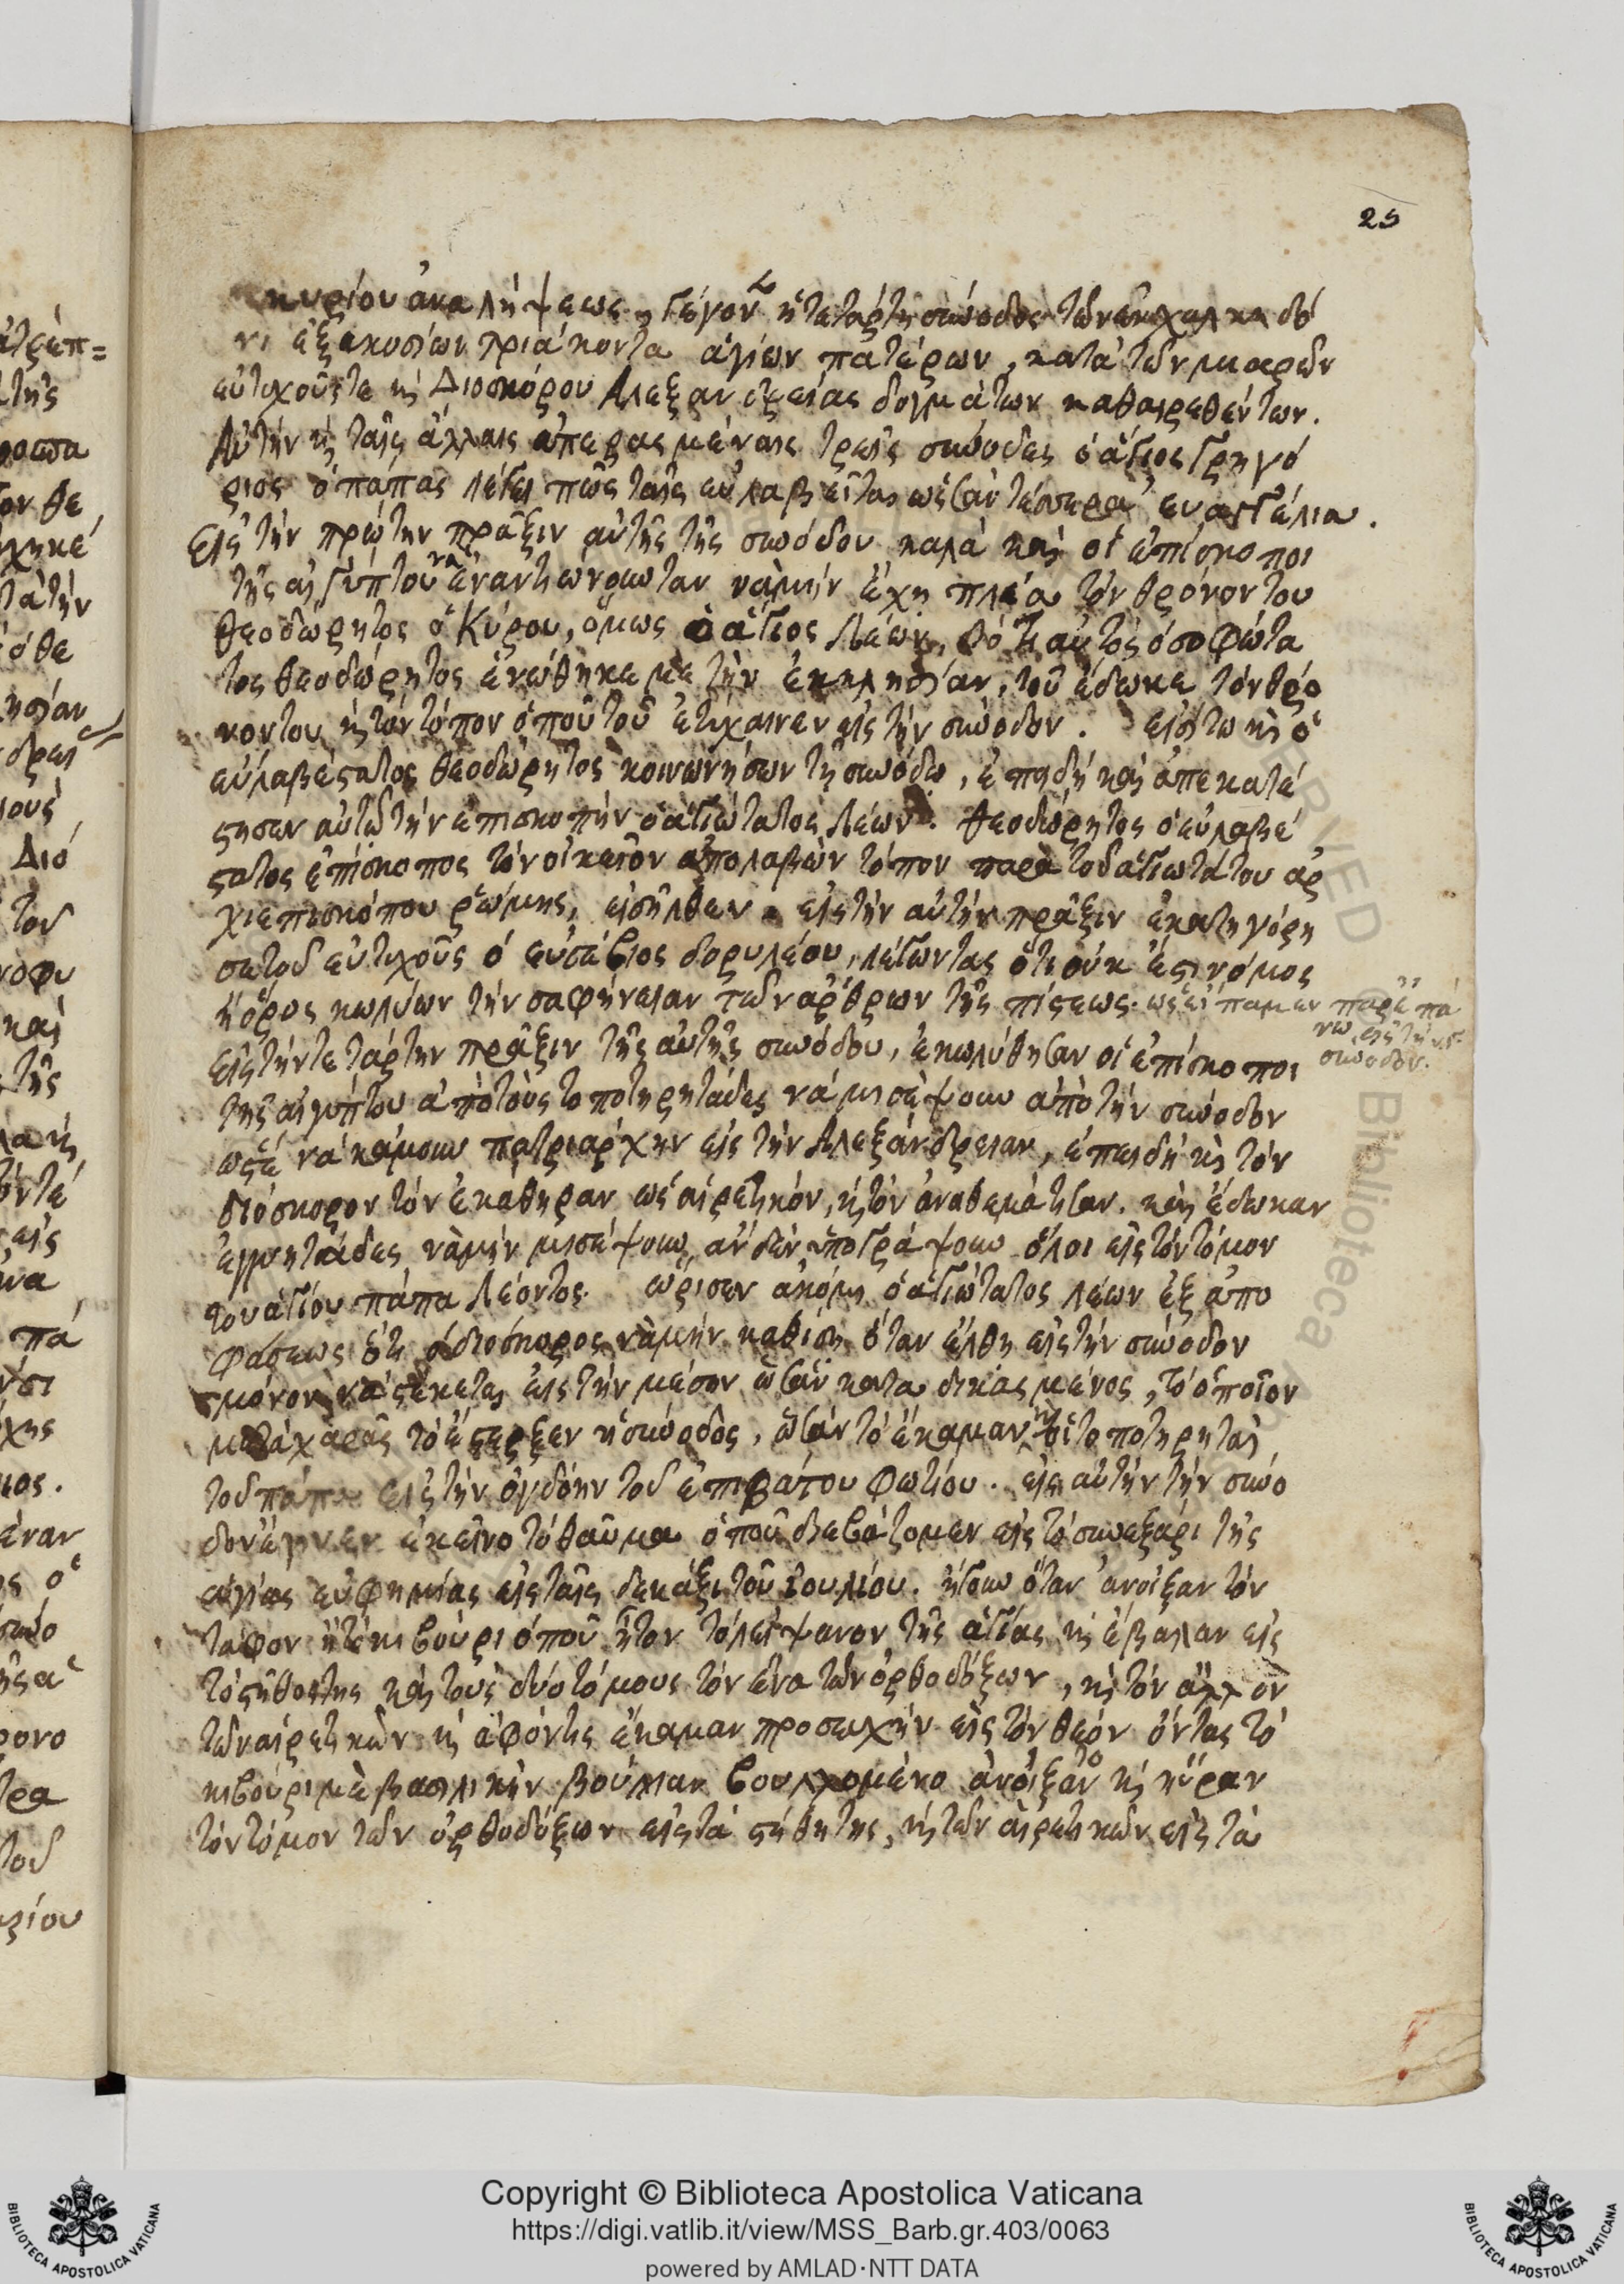 25
κυρίου ἀναλήψεως, γέγονε ἡ τετάρτη σύνοδος τῶν ἐν χαλκηδό
νι ἑξακοσίων τριάκοντα ἁγίων πατέρων, κατὰ τῶν μιαρῶν
εὐτυχοῦς τε κὶ Διοσκόρου Ἀλεξανδρείας δογμάτων καθαιρεθέντων.
Αὐτὴν κὶ ταῖς ἄλλαις ἀπερασμέναις τρεῖς συνόδες ὁ ἅγιος Γρηγό
ριος ὁ πάπας λέγει πῶς ταῖς εὐλαβεῖται ὡσὰν τέσσερα εὐαγγέλια.
Εἰς τὴν πρώτην πρᾶξιν αὐτῆς τῆς συνόδου καλὰ καὶ οἱ ἐπίσκοποι
τῆς αἰγύπτου νὰ ἐναντιώνουνταν νὰ μὴν ἔχῃ πλέα τὸν θρόνον του
θεοδώρητος ὁ Κύρου, ὅμως ὁ ἅγιος Λέων, διότι αὐτὸς ὁ σοφώτα
τος θεοδώρητος ἑνώθηκε μὲ τὴν ἐκκλησίαν, τοῦ ἔδωκε τὸν θρό
νον του κὶ τὸν τόπον ὁποῦ τοῦ ἐτύχαινεν εἰς τὴν σύνοδον. εἰσίτω κὶ ὁ
εὐλαβέστατος θεοδώρητος κοινωνήσων τῇ συνόδῳ, ἐπειδὴ καὶ ἀπεκατέ
στησεν αὐτῷ τὴν ἐπισκοπὴν ὁ ἁγιώτατος Λέων. θεοδώρητος ὁ εὐλαβέ
στατος ἐπίσκοπος τὸν οἰκεῖον ἀπολαβὼν τόπον παρὰ τοῦ ἁγιωτάτου ἀρ
χιεπισκόπου ῥώμης, εἰσῆλθεν. εἰς τὴν αὐτὴν πρᾶξιν ἐκατηγόρη
σε τοῦ εὐτυχοῦς ὁ εὐσέβιος δορυλέου, λέγωντας ὅτι οὐκ ἔστι νόμος
ἢ ὅρος κωλύων τὴν σαφήνειαν τῶν ἄρθρων τῆς πίστεως. ὡς εἴπαμεν παρεπά
νω εἰς τὴν γʹ
σύνοδον.
εἰς τὴν τετάρτην πρᾶξιν τῆς αὐτῆς συνόδου, ἐκωλύθησαν οἱ ἐπίσκοποι
τῆς αἰγύπτου ἀπὸ τοὺς τοποτηρητάδες νὰ μισέψουν ἀπὸ τὴν σύνοδον
ὥστε νὰ κάμουν πατριάρχην εἰς τὴν Ἀλεξάνδρειαν, ἐπειδὴ κὶ τὸν
διόσκορον τὸν ἐκάθηραν ὡς αἱρετικόν, κὶ τὸν ἀναθεμάτισαν. καὶ ἔδωκαν
ἐγγυητάδες νὰ μὴν μισέψουν, ἂν δὲν ὑπογράψουν ὅλοι εἰς τὸν τόμον
τοῦ ἁγίου πάπα Λέοντος. ὥρισεν ἀκόμη ὁ ἁγιώτατος λέων ἐξ ἀπο
φάσεως ὅτι ὁ διόσκορος νὰ μὴν καθίσῃ ὅταν ἔλθῃ εἰς τὴν σύνοδον
μόνον νὰ στέκεται εἰς τὴν μέσον ὡσὰν καταδικασμένος, τὸ ὁποῖον
μετὰ χαρᾶς τὸ ἔστερξεν ἡ σύνοδος, ὡσὰν τὸ ἔκαμαν κὶ οἱ τοποτηρηταὶ
τοῦ πάπα εἰς τὴν ὀγδόην τοῦ ἐπιβάτου Φωτίου. εἰς αὐτὴν τὴν σύνο
δον ἔγινεν ἐκεῖνο τὸ θαῦμα ὁποῦ διαβάζομεν εἰς τὸ συναξάρι τῆς
ἁγίας εὐφημίας εἰς ταῖς δεκάξι τοῦ ἰουλίου. ἤγουν ὅταν ἄνοιξαν τὸν
τάφον ἢ τὸ κιβούρι ὁποῦ ἦτον τὸ λείψανον τῆς ἁγίας κὶ ἔβαλαν εἰς
τὸ στῆθος της καὶ τοὺς δύο τόμους τὸν ἕνα τῶν ὀρθοδόξων, κὶ τὸν ἄλλον
τῶν αἱρετικῶν κὶ ἀφόντις ἔκαμαν προσευχὴν εἰς τὸν θεὸν ὄντας τὸ
κιβούρι μὲ βασιλικὴν βούλλαν βουλλωμένο ἀνοίξαν το κὶ ηὗραν
τὸν τόμον τῶν ὀρθοδόξων εἰς τὰ στήθη της, κὶ τῶν αἱρετικῶν εἰς τὰ
Copyright © Biblioteca Apostolica Vaticana
https://digi.vatlib.it/view/MSS_Barb.gr.403/0063
powered by AMLAD·NTT DATA